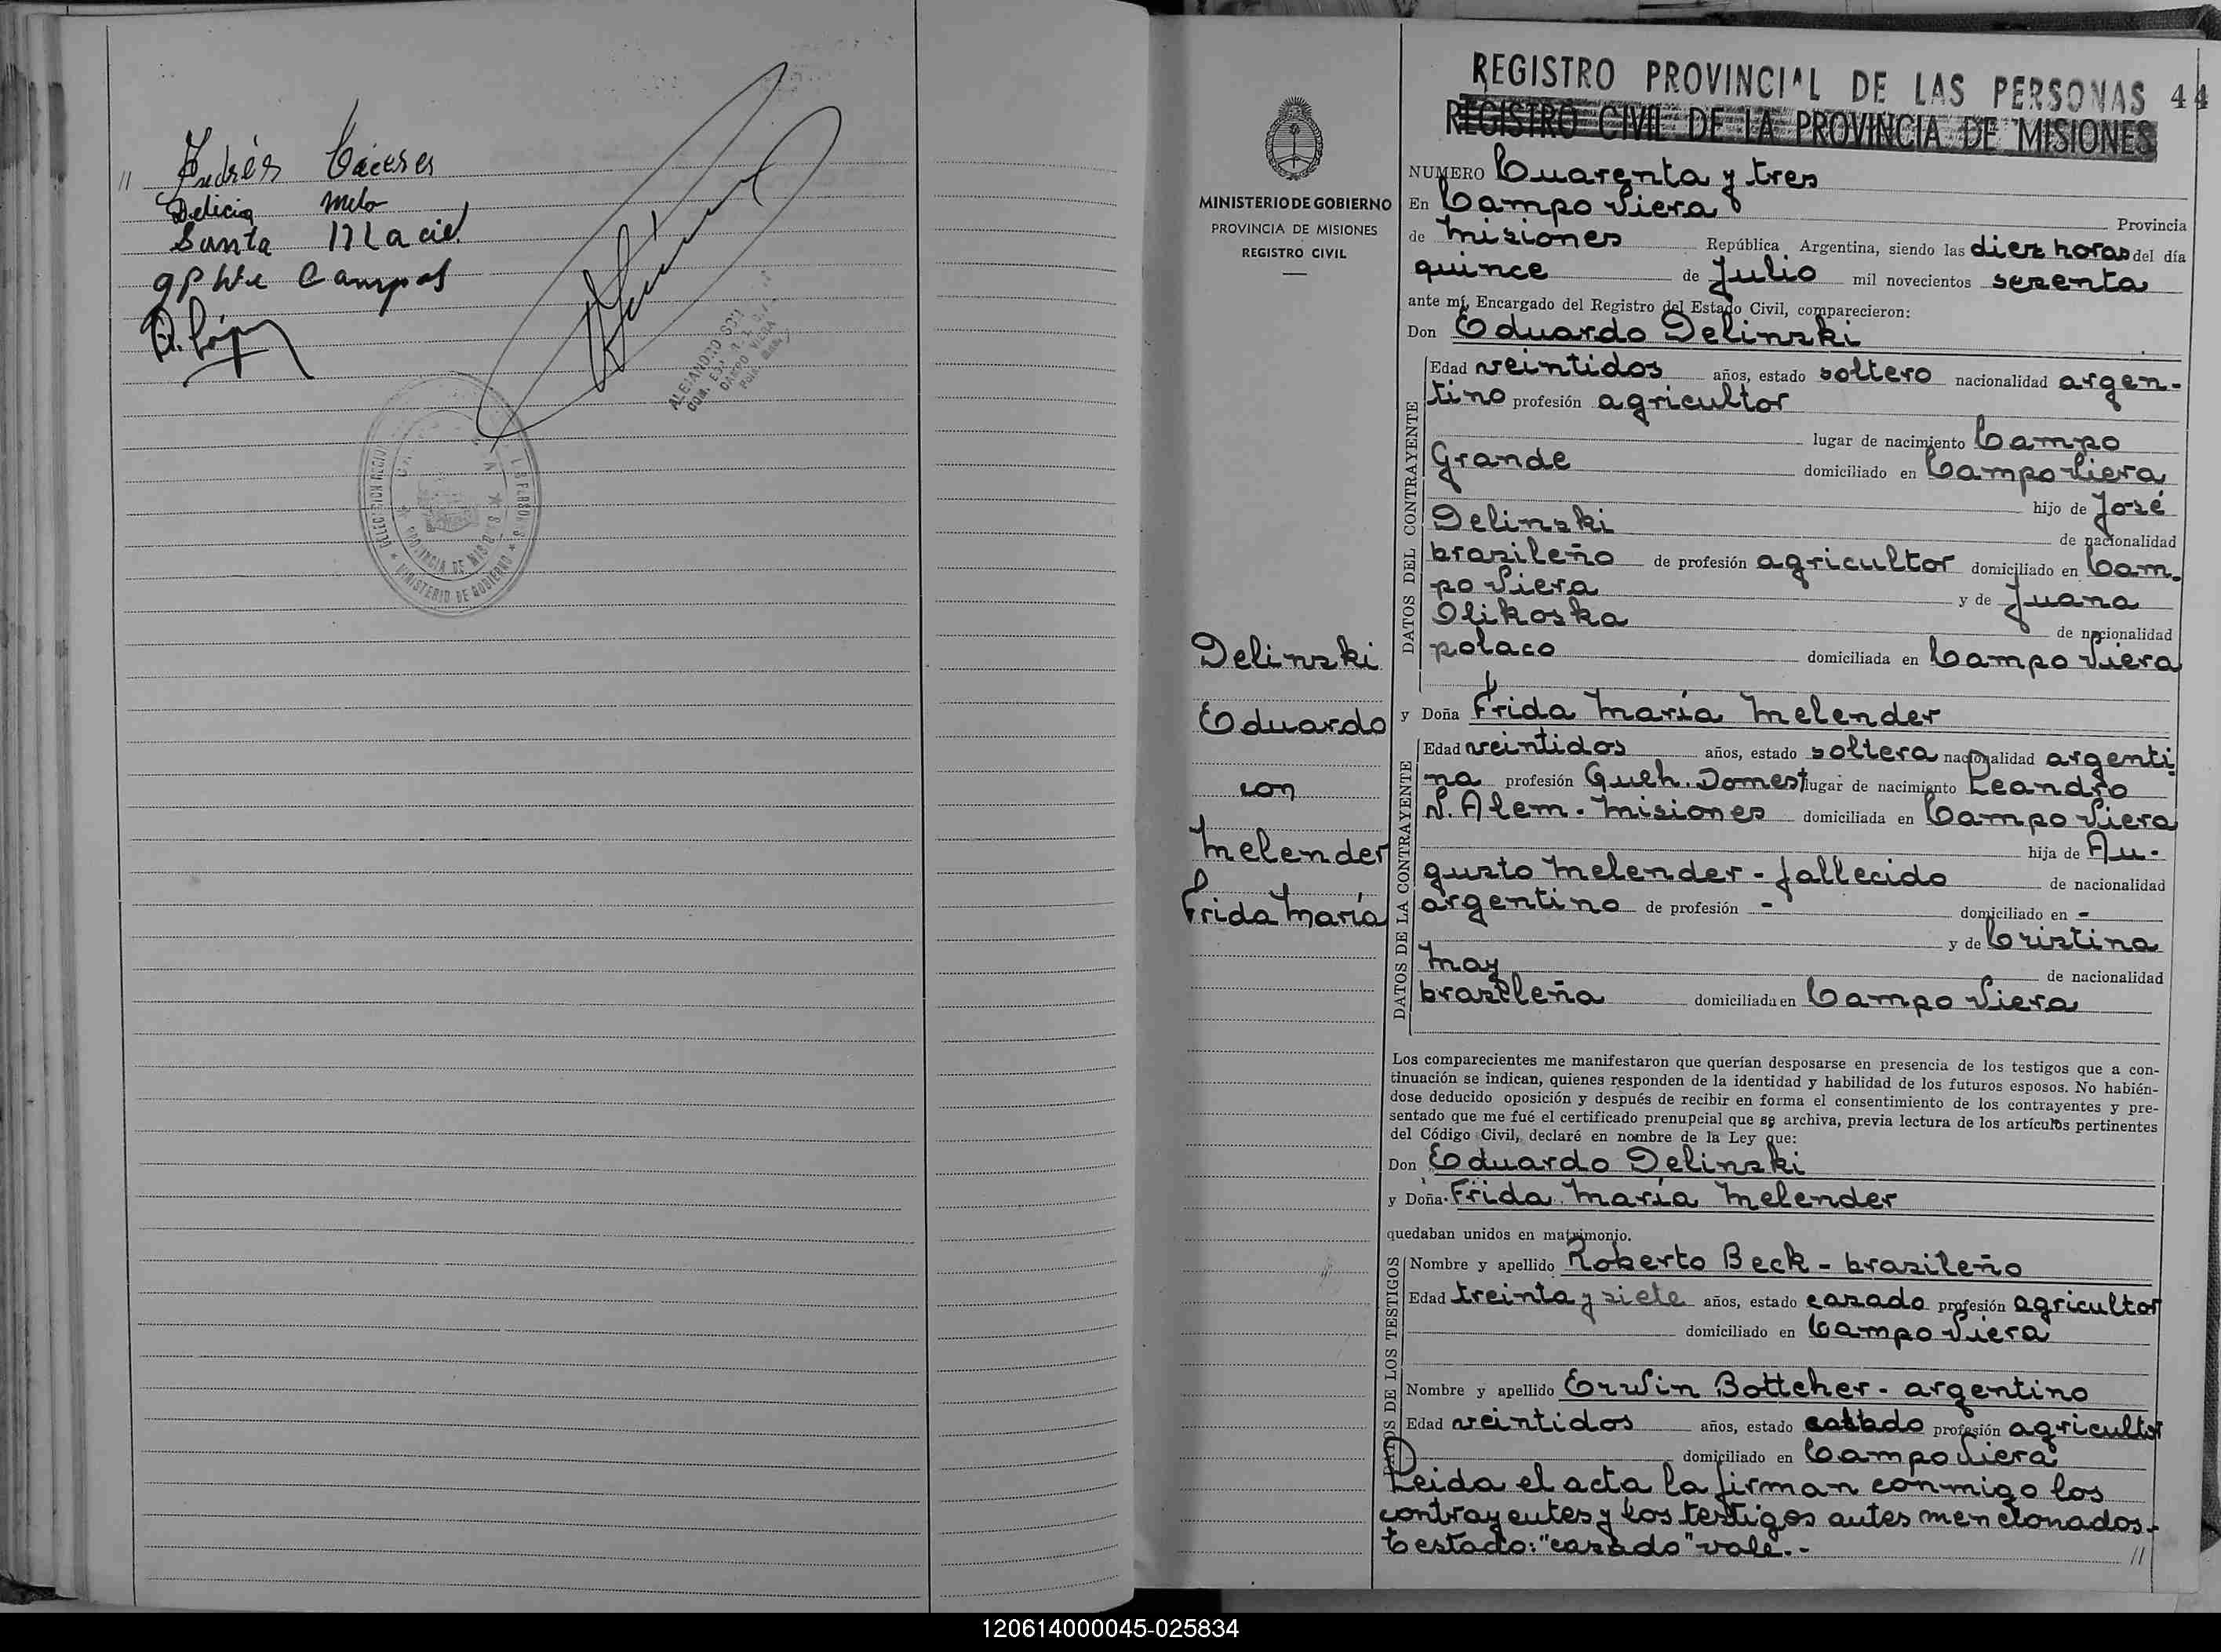 // Andrés Cáceres
Delicia Melo
Santa Maciel
Campos
A. López
ALEJANDRO
CAMPO VIERA
DELEGACION
LAS PERSONAS
PROVINCIA DE MISIONES
MINISTERIO DE GOBIERNO
REGISTRO PROVINCIAL DE LAS PERSONAS 44
REGISTRO CIVIL DE LA PROVINCIA DE MISIONES
MINISTERIO DE GOBIERNO
PROVINCIA DE MISIONES
REGISTRO CIVIL
NUMERO Cuarenta y tres
En Campo Viera Provincia
de Misiones República Argentina, siendo las diez horas del día
quince de Julio mil novecientos sesenta
ante mí, Encargado del Registro del Estado Civil, comparecieron:
Don Eduardo Delinski
DATOS DEL CONTRAYENTE
Edad veintidos años, estado soltero nacionalidad argen-
tino profesión agricultor
lugar de nacimiento Campo
Grande domiciliado en Campo Viera
hijo de José
Delinski de nacionalidad
brasileño de profesión agricultor domiciliado en Cam-
po Viera y de Juana
Olikoska de nacionalidad
polaco domiciliada en Campo Viera
Delinski
Eduardo
con
Melender
Frida María
y Doña Frida María Melender
DATOS DE LA CONTRAYENTE
Edad veintidos años, estado soltera nacionalidad argenti
na profesión Queh. Domest lugar de nacimiento Leandro
N. Alem - Misiones domiciliada en Campo Viera
hija de Au-
gusto Melender - fallecido de nacionalidad
argentino de profesión - domiciliado en -
y de Cristina
May de nacionalidad
brasileña domiciliada en Campo Viera
Los comparecientes me manifestaron que querían desposarse en presencia de los testigos que a con-
tinuación se indican, quienes responden de la identidad y habilidad de los futuros esposos. No habién-
dose deducido oposición y después de recibir en forma el consentimiento de los contrayentes y pre-
sentado que me fué el certificado prenupcial que se archiva, previa lectura de los artículos pertinentes
del Código Civil, declaré en nombre de la Ley que:
Don Eduardo Delinski
y Doña Frida María Melender
quedaban unidos en matrimonio.
DATOS DE LOS TESTIGOS
Nombre y apellido Roberto Beck - brasileño
Edad treinta y siete años, estado casado profesión agricultor
domiciliado en Campo Viera
Nombre y apellido Erwin Bottcher - argentino
Edad veintidos años, estado casado profesión agricultor
domiciliado en Campo Viera
Leida el acta la firman conmigo los
contrayentes y los testigos antes mencionados.-
Testado: "casado" vale.- //
120614000045-025834